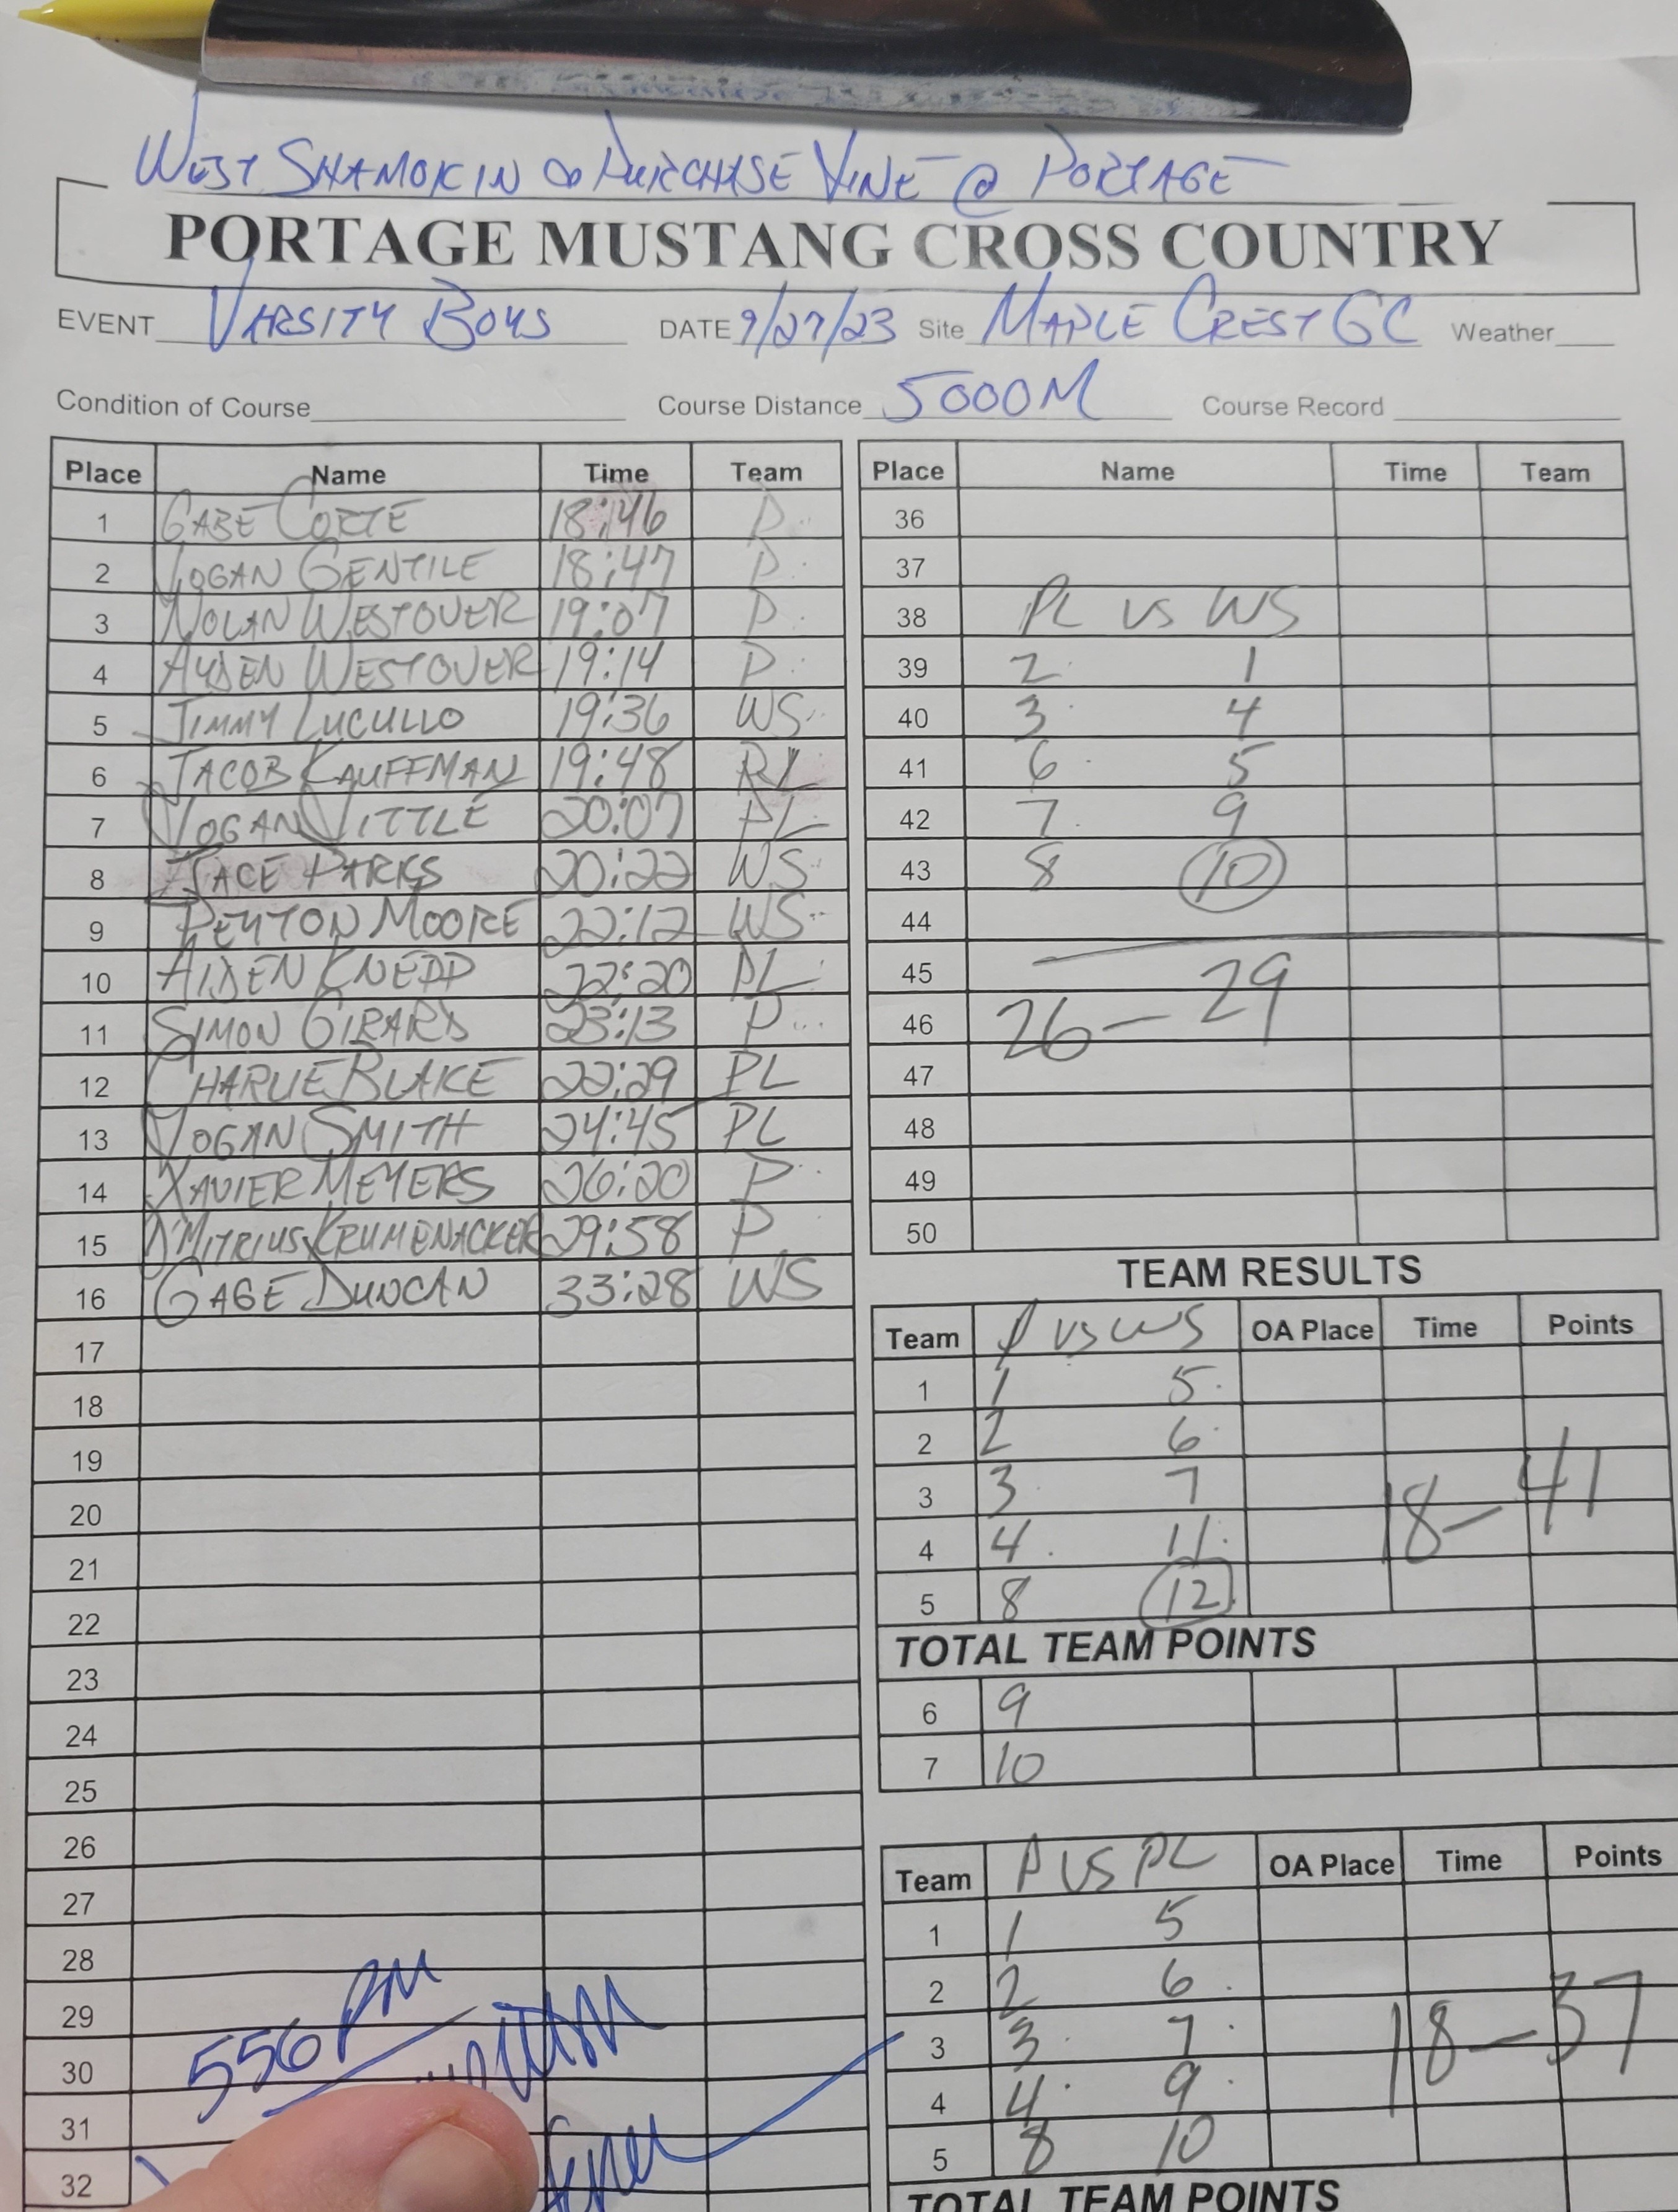 WEST SHAMOKIN & PURCHASE LINE @ PORTAGE
PORTAGE MUSTANG CROSS COUNTRY
EVENT VARSITY BOYS DATE 9/27/23 Site MAPLE CREST GC Weather
Condition of Course Course Distance 5000M Course Record
Place Name Time Team
1 GABE CORTE 18:46 P
2 LOGAN GENTILE 18:47 P
3 NOLAN WESTOVER 19:07 P
4 AYDEN WESTOVER 19:14 P
5 JIMMY LUCULLO 19:36 WS
6 JACOB KAUFFMAN 19:48 PL
7 LOGAN VITTLE 20:07 PL
8 JACE PARKS 20:22 WS
9 PEYTON MOORE 22:12 WS
10 AIDEN KNEPP 22:20 PL
11 SIMON GIRARD 23:13 P
12 CHARLIE BLAKE 22:29 PL
13 LOGAN SMITH 24:45 PL
14 XAVIER MEYERS 26:20 P
15 D'MITRIUS KRUMENACKER 29:58 P
16 GAGE DUNCAN 33:28 WS
17
18
19
20
21
22
23
24
25
26
27
28
29
30 556 PM
31
32
Place Name Time Team
36
37
38 PL VS WS
39 2 1
40 3 4
41 6 5
42 7 9
43 8 10
44
45
46 26 - 29
47
48
49
50
TEAM RESULTS
Team P VS WS OA Place Time Points
1 1 5
2 2 6
3 3 7 18 - 41
4 4 11
5 8 12
TOTAL TEAM POINTS
6 9
7 10
Team P VS PL OA Place Time Points
1 1 5
2 2 6
3 3 7 18 - 37
4 4 9
5 8 10
TOTAL TEAM POINTS